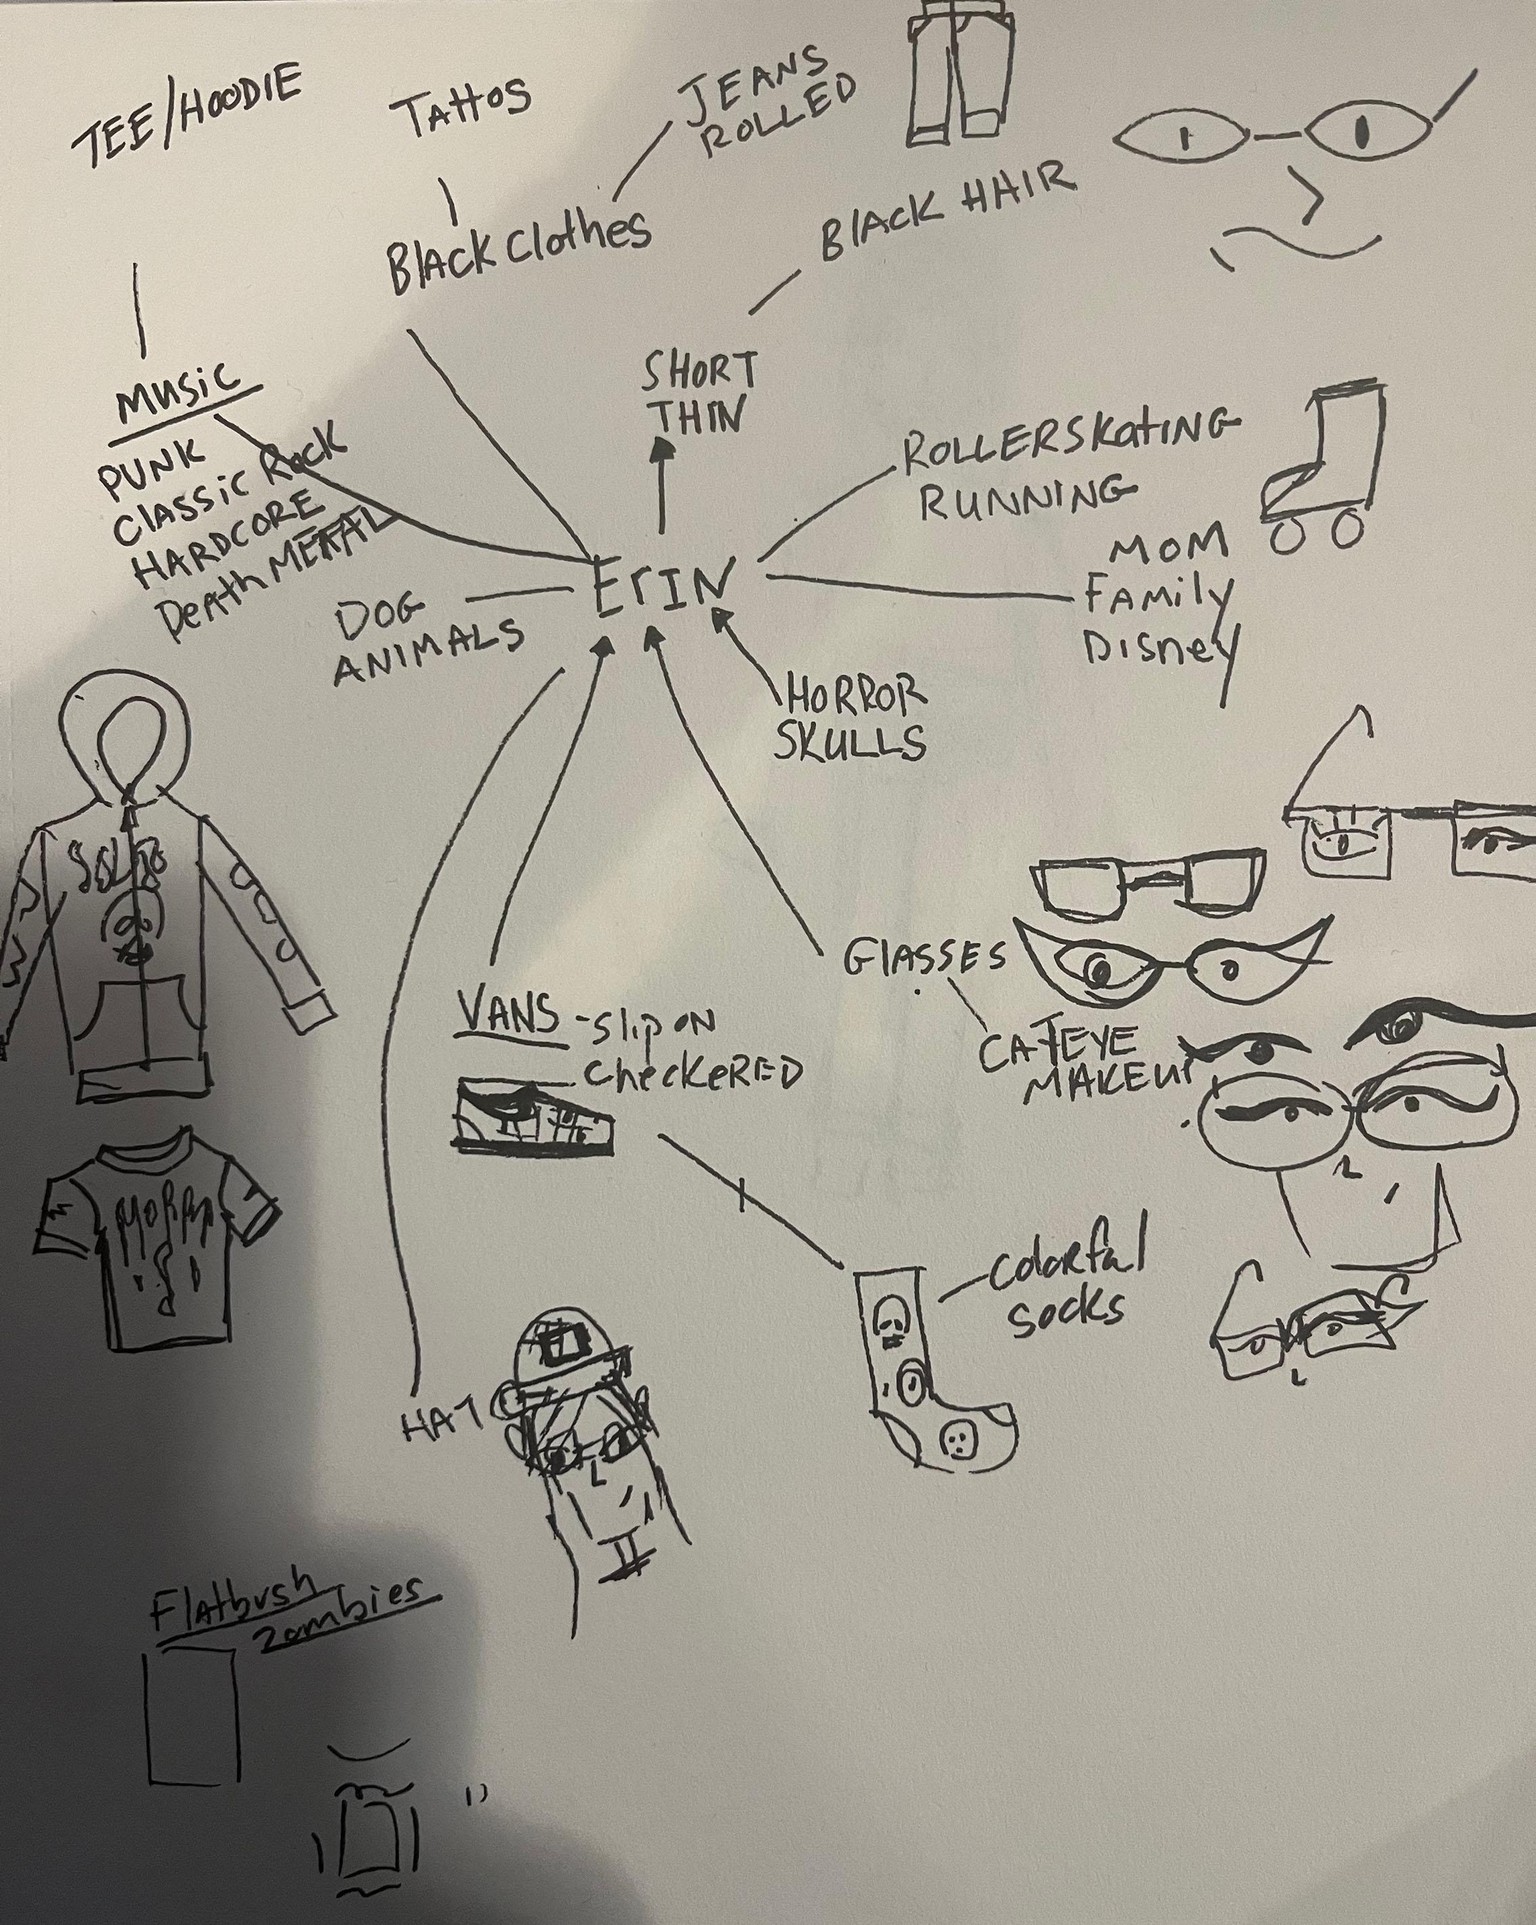 TEE/HOODIE
TAttOS
JEANS
ROLLED
BLACK Clothes
BLACK HAIR
MUSiC
PUNK
ClASSiC ROCK
HARDCORE
DeAth METAL
SHORT
THIN
ROLLERSKAtING
RUNNING
MOM
FAMily
DISNEy
ErIN
DOG
ANIMALS
HORROR
SKULLS
GlASSES
CATEYE
MAKEUP
VANS - Slip ON
CheckERED
COlORful
SOCKS
HAT
FlAtbush
Zombies